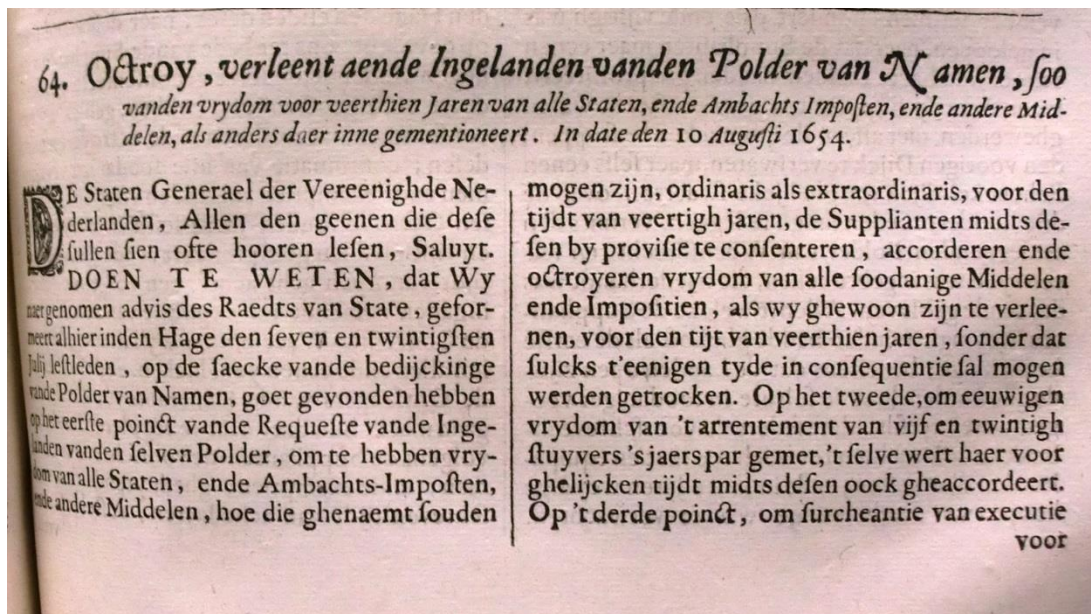 64. Octroy, verleent aende Ingelanden vanden Polder van Namen, ſoo
vanden vrydom voor veerthien Jaren van alle Staten, ende Ambachts Impoſten, ende andere Mid-
delen, als anders daer inne gementioneert. In date den 10 Auguſti 1654.
DE Staten Generael der Vereenighde Ne-
derlanden, Allen den geenen die deſe
ſullen ſien ofte hooren leſen, Saluyt.
DOEN TE WETEN, dat Wy
naer genomen advis des Raedts van State, gefor-
meert alhier inden Hage den ſeven en twintigſten
Julij leſtleden, op de ſaecke vande bedijckinge
vande Polder van Namen, goet gevonden hebben
op het eerſte poinct vande Requeſte vande Inge-
landen vanden ſelven Polder, om te hebben vry-
dom van alle Staten, ende Ambachts-Impoſten,
ende andere Middelen, hoe die ghenaemt ſouden
mogen zijn, ordinaris als extraordinaris, voor den
tijdt van veertigh jaren, de Supplianten midts de-
ſen by proviſie te conſenteren, accorderen ende
octroyeren vrydom van alle ſoodanige Middelen
ende Impoſitien, als wy ghewoon zijn te verlee-
nen, voor den tijt van veerthien jaren, ſonder dat
ſulcks t'eenigen tyde in conſequentie ſal mogen
werden getrocken. Op het tweede, om eeuwigen
vrydom van 't arrentement van vijf en twintigh
ſtuyvers 's jaers par gemet, 't ſelve wert haer voor
ghelijcken tijdt midts deſen oock gheaccordeert.
Op 't derde poinct, om ſurcheantie van executie
voor